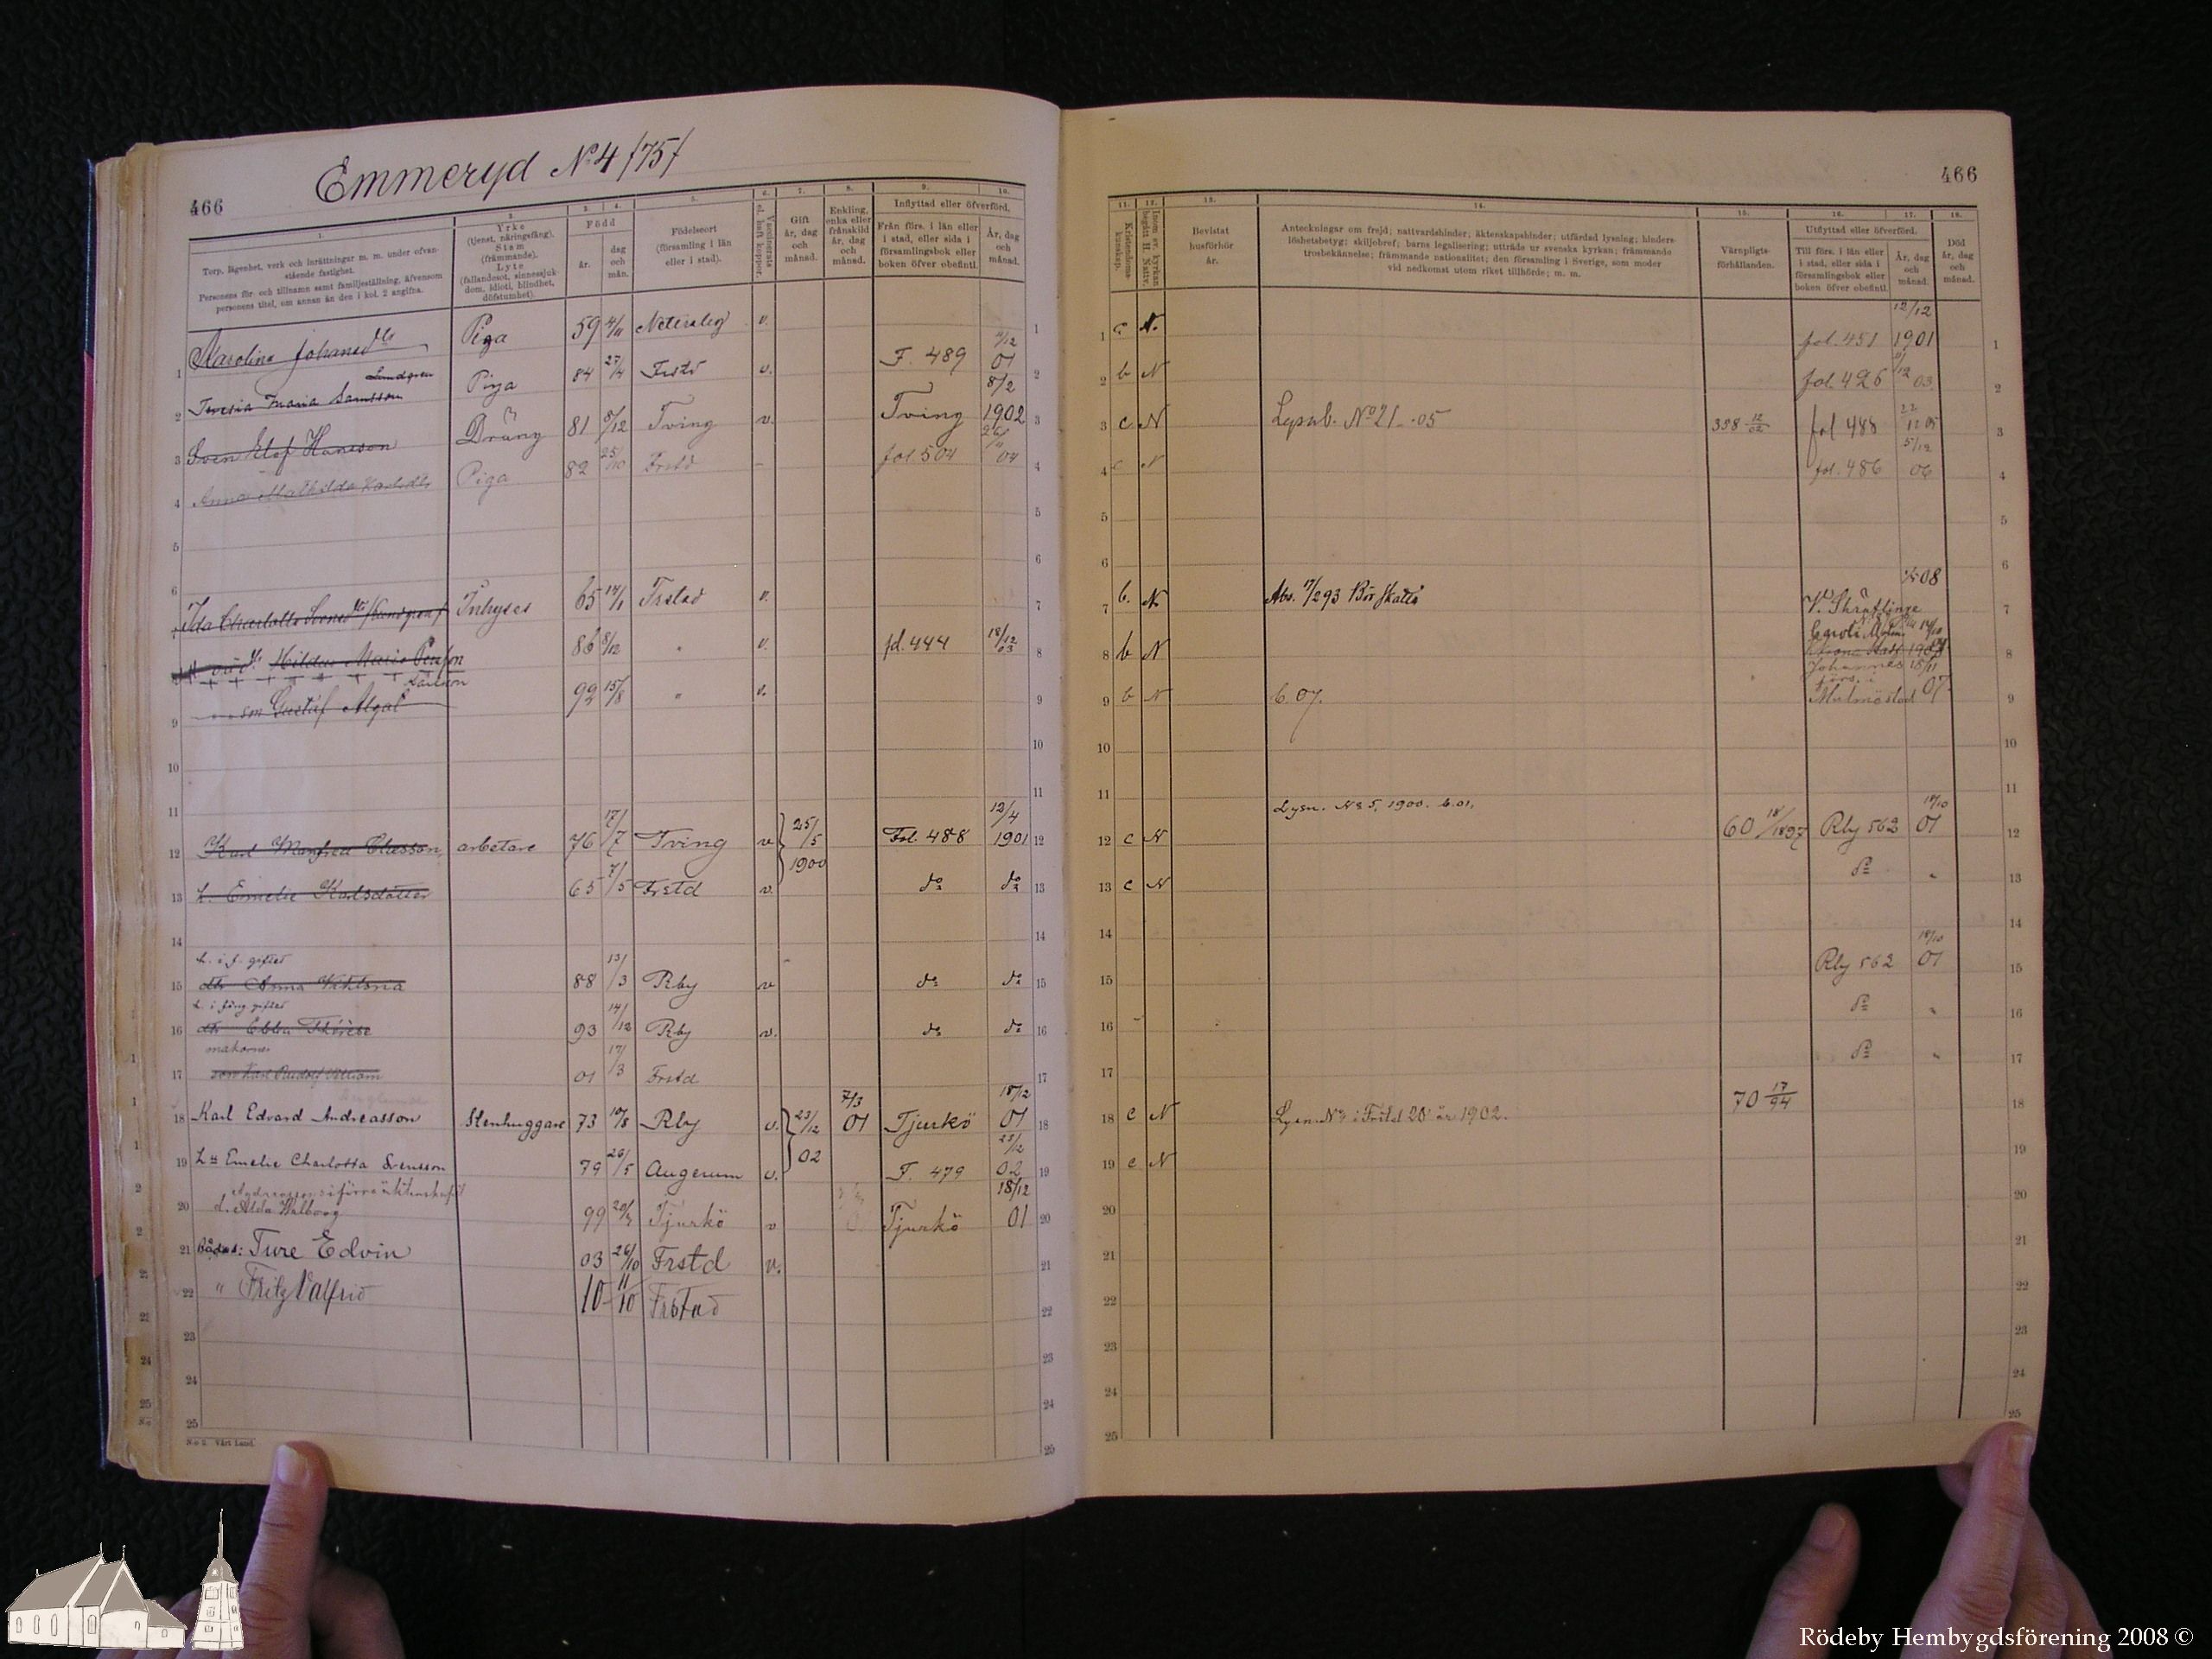 Emmeryd No 4 /75/
466
1.
Torp, lägenhet, verk och inrättningar m. m. under ofvan-
stående fastighet.
Personens för- och tillnamn samt familjeställning, äfvensom
personens titel, om annan än den i kol. 2 angifna.
2.
Yrke
(tjenst, näringsfång).
Stam
(främmande).
Lyte
(fallandesot, sinnessjuk-
dom, idioti, blindhet,
döfstumhet).
3. 4.
Född
år.
dag
och
mån.
5.
Födelseort
(församling i län
eller i stad).
6.
7.
Gift
år, dag
och
månad.
8.
Enkling,
enka eller
frånskild
år, dag
och
månad.
9. 10.
Inflyttad eller öfverförd.
Från förs. i län eller
i stad, eller sida i
församlingsbok eller
boken öfver obefintl.
År, dag
och
månad.
1 Karolina Johansdtr Piga 59 4/11 v. 1
Lundgren
2 Teresia Maria Samsson Piga 84 27/4 Frstd v. F. 489 11/12 01 2
3 Sven Elof Hansson Dräng 81 8/12 Tving v. Tving 8/2 1902 3
4 Anna Mathilda Karlsdtr Piga 82 25/10 Frstd - fol. 504 04 4
5 5
6 6
Ida Charlotta Inhyses 65 14/1 Frstad v. 7
Hilda Maria 86 8/12 " v. fol. 444 18/12 03 8
Karlsson
9 sm Gustaf Algot 92 15/8 " v. 9
10 10
11 11
12 Karl Manfred Claesson arbetare 76 17/7 Tving v 25/5 1900 Fol. 488 12/4 1901 12
13 h. Emelie Karlsdotter 65 7/5 Frstd v. do do 13
14 14
h. i f. giftet
15 dtr Anna Viktoria 88 13/3 Rby v do do 15
h. i förg giftet
16 dtr Ebba Therese 93 14/12 Rby v. do do 16
makarnes
17 son Karl Rudolf William 01 17/3 Frstd 17
18 Karl Edvard Andreasson Stenhuggare 73 10/8 Rby v. 23/12 02 7/3 01 Tjurkö 18/12 01 18
19 H:u Emelie Charlotta Svensson 79 26/5 Augerum v. F. 479 23/12 02 19
Andreassons i förra äktenskapet
20 d. Alda Walborg 99 20/3 Tjurkö v Tjurkö 18/12 01 20
21 Bådas: Ture Edvin 03 26/10 Frstd v. 21
22 " Fritz Valfrid 10 11/10 Frstad 22
23 23
24 24
25 25
N:o 2. Vårt Land.
466
11.
Kristendoms-
kunskap.
12.
13.
Bevistat
husförhör
år.
14.
Anteckningar om frejd; nattvardshinder; äktenskapshinder; utfärdad lysning; hinders-
löshetsbetyg; skiljobref; barns legalisering; utträde ur svenska kyrkan; främmande
trosbekännelse; främmande nationalitet; den församling i Sverige, som moder
vid nedkomst utom riket tillhörde; m. m.
15.
Värnpligts-
förhållanden.
16. 17.
Utflyttad eller öfverförd.
Till förs. i län eller
i stad, eller sida i
församlingsbok eller
boken öfver obefintl.
År, dag
och
månad.
18.
Död
år, dag
och
månad.
1 c N. fol. 451 12/12 1901 1
2 b N fol. 426 12 03 2
3 c N Lysnb. No 21 - 05 398 12/02 fol 488 22/12 05 3
4 c N fol. 486 5/12 06 4
5 5
6 6
7 b. N. Abs. 7/2 93 08 7
8 b N Caroli 8
Johannes 18/11
förs. i
9 b N b. 07. Malmö stad 07. 9
10 10
11 11
Lysn. No 5, 1900. b. 01.
12 c N 60 18/1897 Rby 562 18/10 01 12
13 c N do " 13
14 14
15 Rby 562 18/10 01 15
16 do " 16
17 do " 17
18 c N Lysn. No i Fristd 20 år 1902. 70 17/94 18
19 c N
20 20
21 21
22 22
23 23
24 24
25 25
Rödeby Hembygdsförening 2008 ©